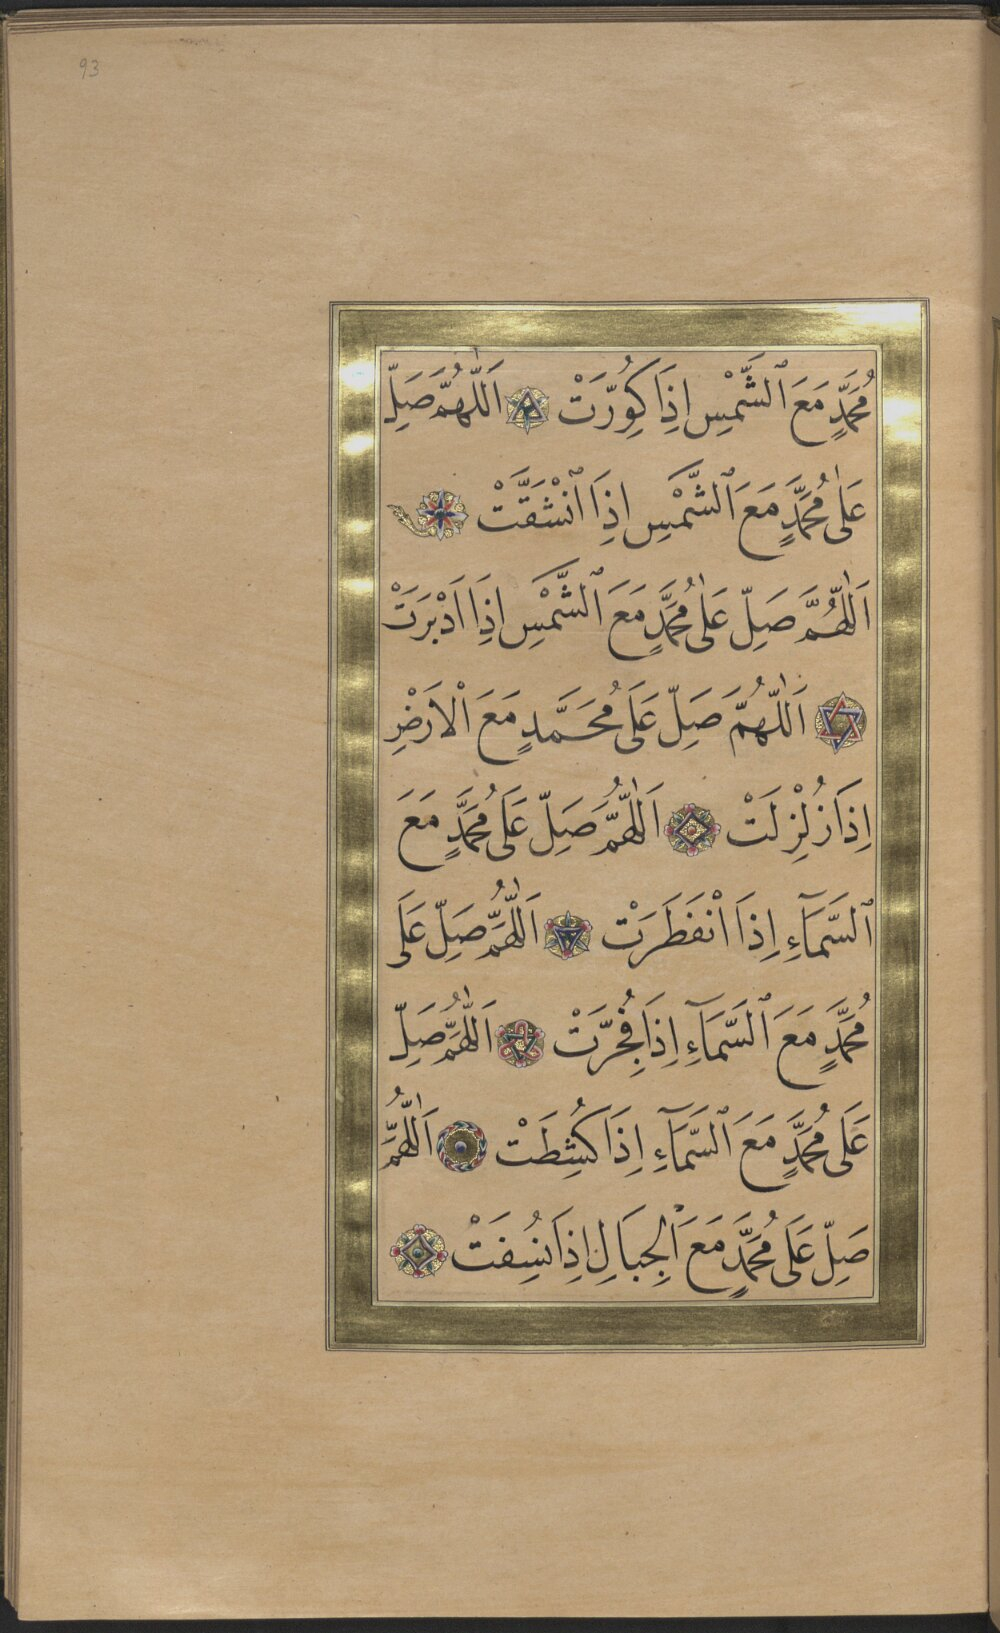 93
مُحَمَّدٍ مَعَ ٱلشَّمْسِ اِذَا كُوِّرَتْ اَللّٰهُمَّ صَلِّ
عَلٰى مُحَمَّدٍ مَعَ ٱلشَّمْسِ اِذَا ٱنْشَقَّتْ
اَللّٰهُمَّ صَلِّ عَلٰى مُحَمَّدٍ مَعَ ٱلشَّمْسِ اِذَا اَدْبَرَتْ
اَللّٰهُمَّ صَلِّ عَلَى مُحَمَّدٍ مَعَ الْاَرْضِ
اِذَا زُلْزِلَتْ اَللّٰهُمَّ صَلِّ عَلَى مُحَمَّدٍ مَعَ
ٱلسَّمَآءِ اِذَا انْفَطَرَتْ اَللّٰهُمَّ صَلِّ عَلَى
مُحَمَّدٍ مَعَ ٱلسَّمَآءِ اِذَا فُجِّرَتْ اَللّٰهُمَّ صَلِّ
عَلَى مُحَمَّدٍ مَعَ ٱلسَّمَآءِ اِذَا كُشِطَتْ اَللّٰهُمَّ
صَلِّ عَلَى مُحَمَّدٍ مَعَ الْجِبَالِ اِذَا نُسِفَتْ